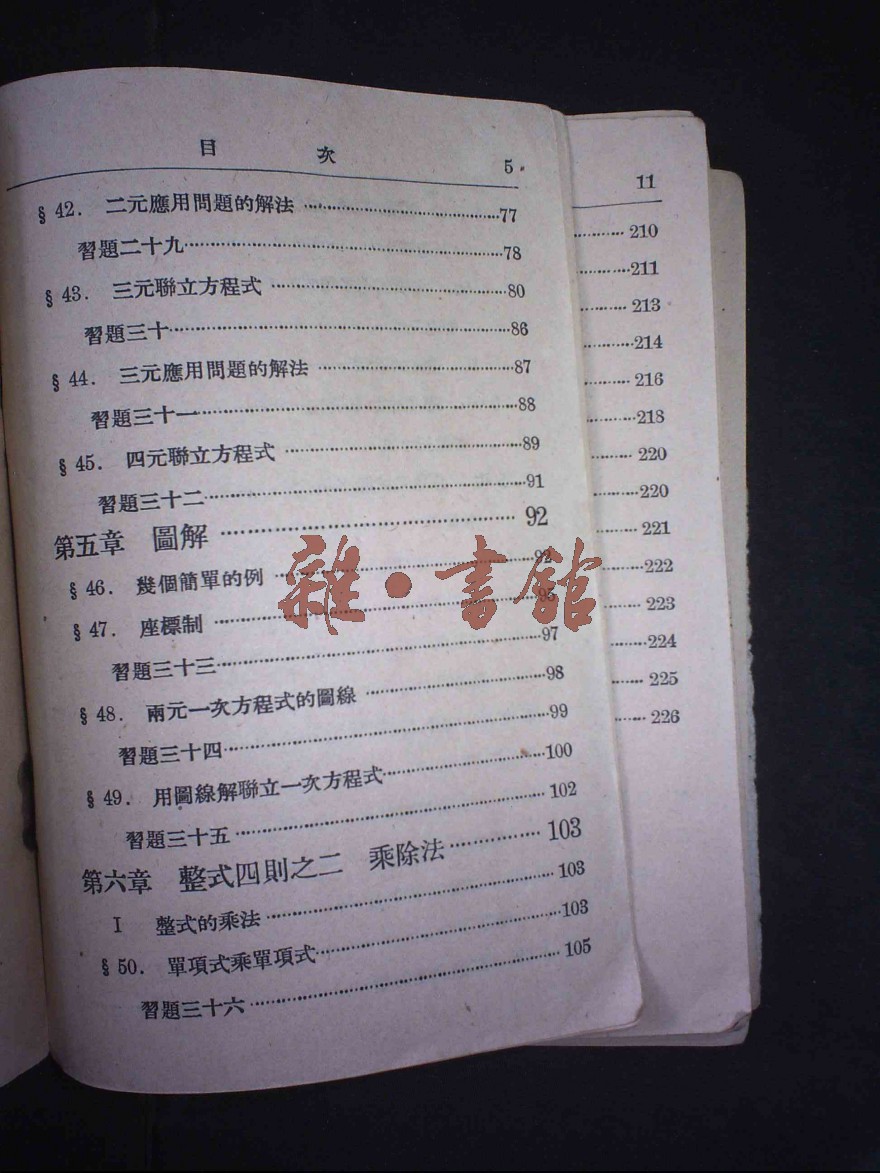 目 次 5
§ 42. 二元應用問題的解法 77
習題二十九 78
§ 43. 三元聯立方程式 80
習題三十 86
§ 44. 三元應用問題的解法 87
習題三十一 88
§ 45. 四元聯立方程式 89
習題三十二 91
第五章 圖解 92
§ 46. 幾個簡單的例 92
§ 47. 座標制 95
習題三十三 97
§ 48. 兩元一次方程式的圖線 98
習題三十四 99
§ 49. 用圖線解聯立一次方程式 100
習題三十五 102
第六章 整式四則之二 乘除法 103
I 整式的乘法 103
§ 50. 單項式乘單項式 103
習題三十六 105
雜·書館
11
210
211
213
214
216
218
220
220
221
222
223
224
225
226